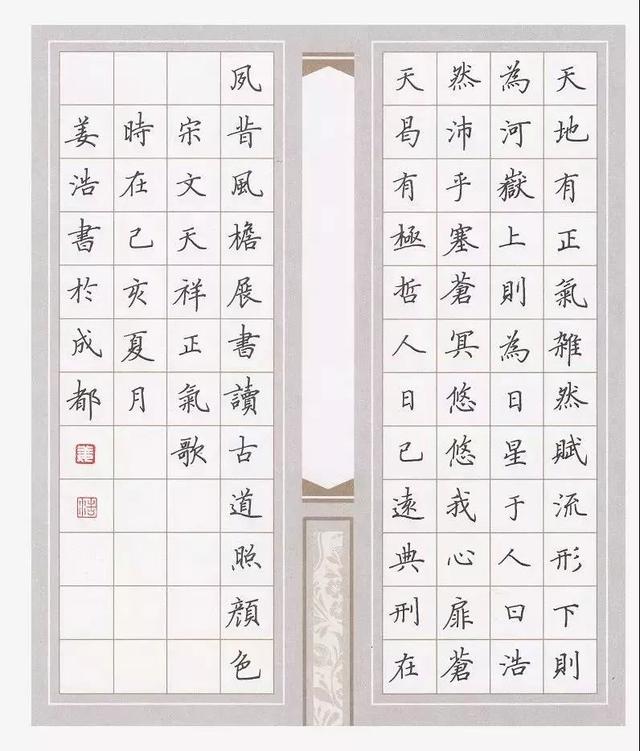 天地有正氣雜然賦流形下則
為河嶽上則為日星于人曰浩
然沛乎塞蒼冥悠悠我心扉蒼
天曷有極哲人日已遠典刑在
夙昔風檐展書讀古道照顏色
宋文天祥正氣歌
時在己亥夏月
姜浩書於成都
姜
浩